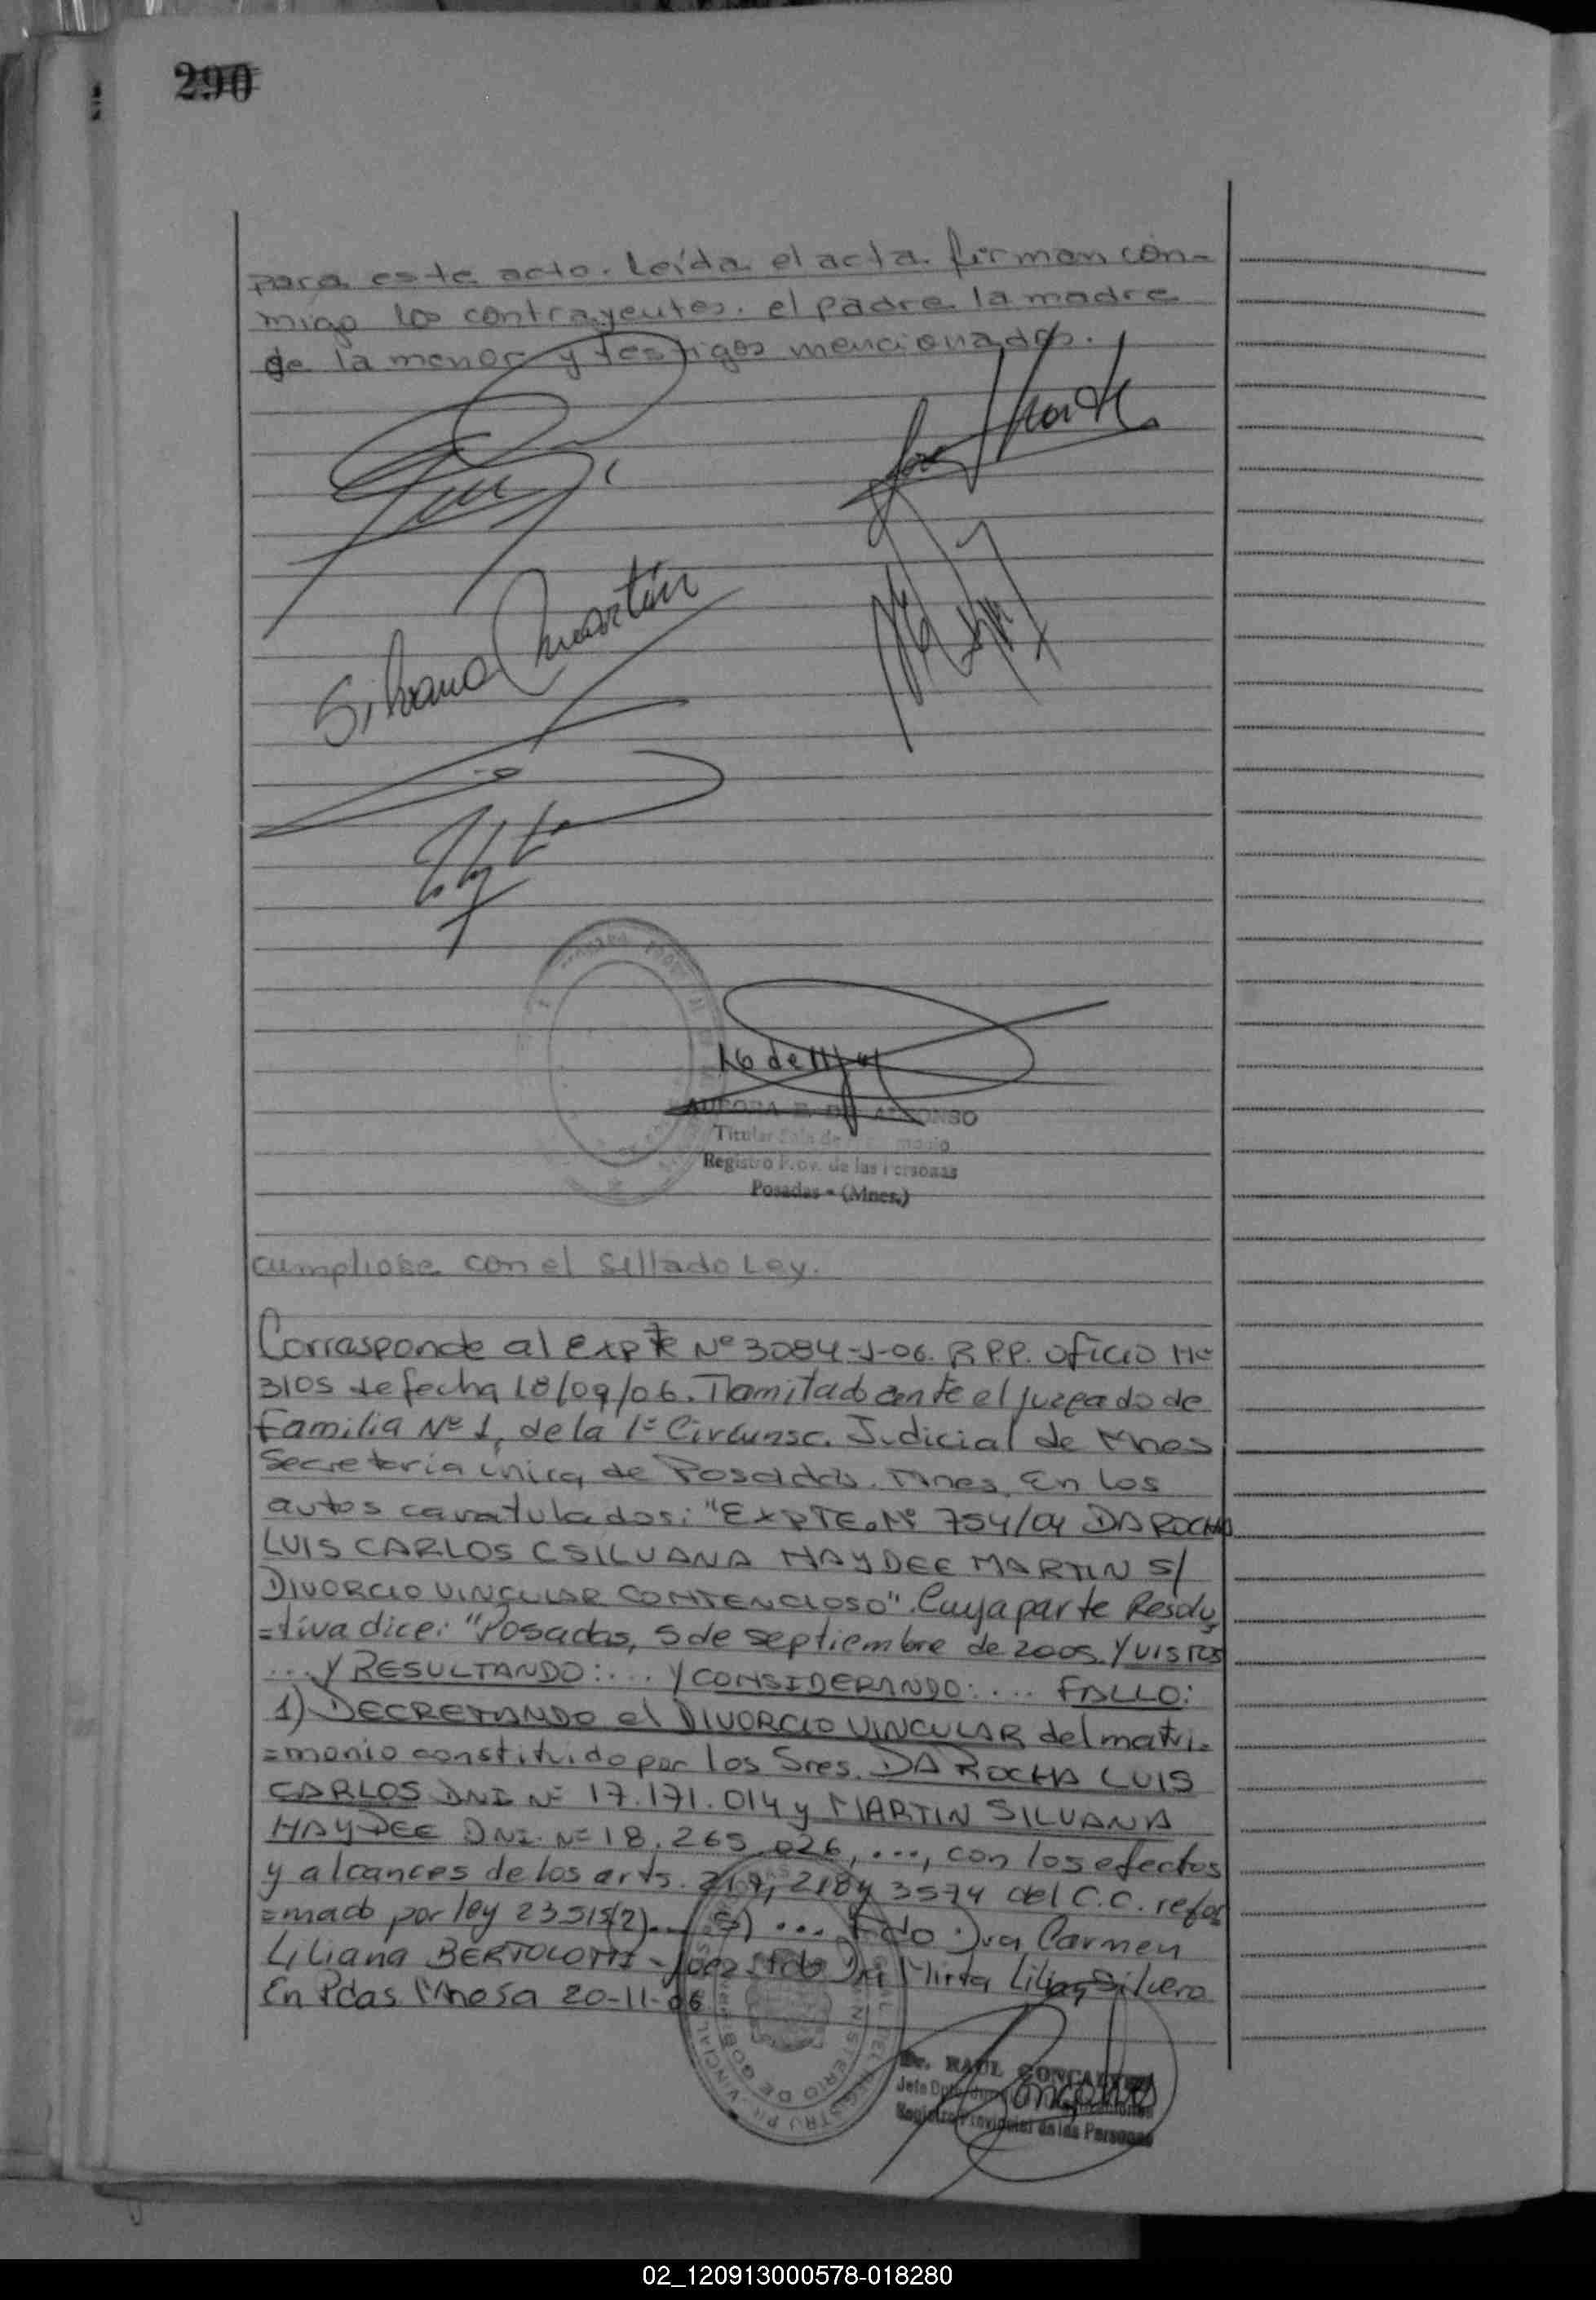 290
para este acto. Leída el acta. firman con-
migo los contrayentes. el padre la madre
de la menor y testigos mencionados.
Silvana Martín
16 de
AURORA E. DE ALFONSO
Titular Sala de
Registro Prov. de las Personas
Posadas - (Mnes.)
cumpliose con el sellado Ley.
Corresponde al Expte Nº 3084-J-06. R.P.P. oficio Nº
3105 de fecha 18/09/06. Tramitado ante el juzgado de
Familia Nº 1, de la 1ª Circunsc. Judicial de Mnes
Secretaria única de Posadas. Mnes. En los
autos caratulados: "EXPTE. Nº 754/04 DA ROCHA
LUIS CARLOS C SILVANA HAYDEE MARTIN S/
DIVORCIO VINCULAR CONTENCIOSO". Cuya parte Resolu
=tiva dice: "Posadas, 5 de septiembre de 2005. Y VISTOS
... Y RESULTANDO: ... Y CONSIDERANDO: ... FALLO:
1) DECRETANDO el DIVORCIO VINCULAR del matri-
=monio constituido por los Sres. DA ROCHA LUIS
CARLOS DNI Nº 17.171.014 y MARTIN SILVANA
HAYDEE DNI. Nº 18.265.026, ..., con los efectos
y alcances de los arts. 217, 218 y 3574 del C.C. refor
=mado por ley 23515 2) ... 5) ... Fdo Dra Carmen
Liliana BERTOLOTTI - Juez. Fdo Dra Mirta Lilian Silvero
En Pdas Mnes a 20-11-06
Dr. RAUL GONCALVES
Registro Provincial de las Personas
02_120913000578-018280